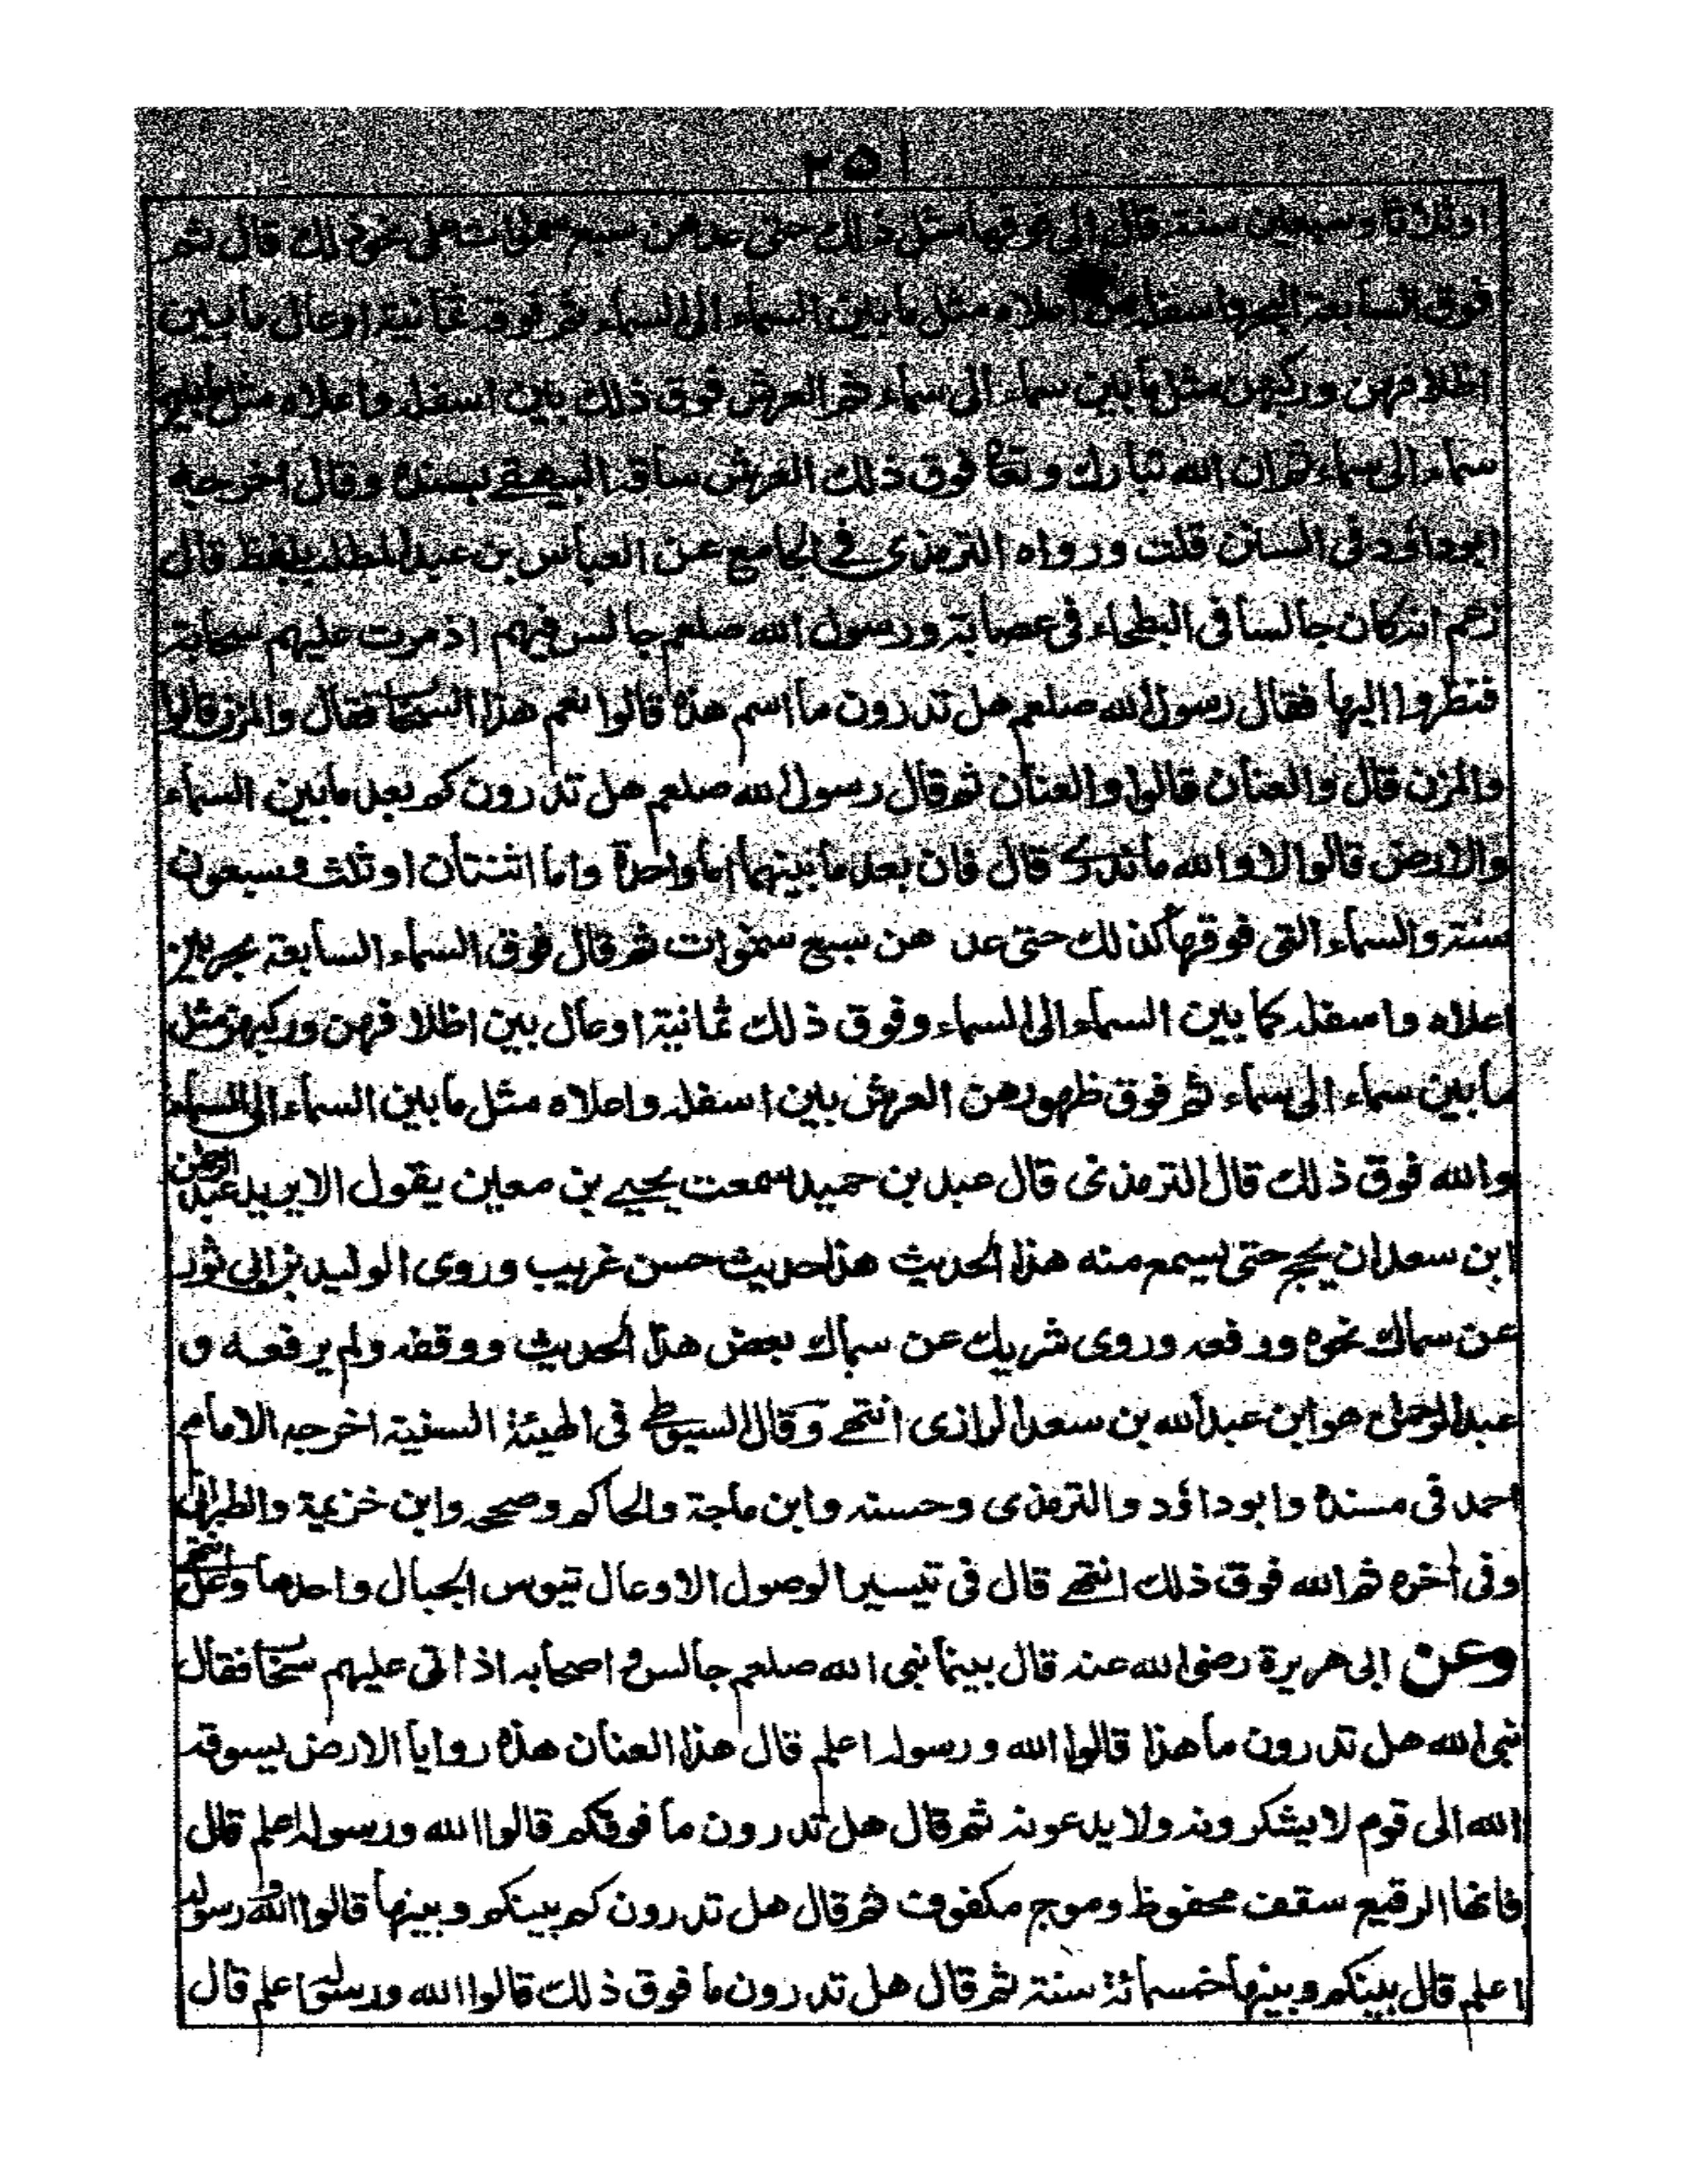 ٢٥١
اوثلاثا وسبعين سنة قال الى فوقها مثل ذلك حتى عدهن سبع سموات على نحو ذلك قال ثم
فوق السابعة البحر واسفله من اعلاه مثل ما بين السماء الى السماء ثم فوقه ثمانية اوعال ما بين
اظلافهن وركبهن مثل ما بين سماء الى سماء ثم العرش فوق ذلك بين اسفله واعلاه مثل ما بين
سماء الى سماء ثم ان الله تبارك وتعا فوق ذلك العرش ساقه البيهقے بسنده وقال اخرجه
ابوداؤد فى السنن قلت ورواه الترمذى فے الجامع عن العباس بن عبدالمطلب بلفظ قال
زعم انه كان جالسا فى البطحاء فى عصابة ورسول الله صلعم جالس فيهم اذ مرت عليهم سحابة
فنظروا اليها فقال رسول الله صلعم هل تدرون ما اسم هذه قالوا نعم هذا السحاب فقال والمزن قالوا
والمزن قال والعنان قالوا والعنان ثم قال رسول الله صلعم هل تدرون كم بعد ما بين السماء
والارض قالوا لا والله ما ندرى قال فان بعد ما بينهما اما واحدة واما اثنتان اوثلث وسبعون
سنة والسماء التى فوقها كذلك حتى عدهن سبع سموات ثم قال فوق السماء السابعة بحر بين
اعلاه واسفله كما بين السماء الى السماء وفوق ذلك ثمانية اوعال بين اظلافهن وركبهن مثل
ما بين سماء الى سماء ثم فوق ظهورهن العرش بين اسفله واعلاه مثل ما بين السماء الى السماء
والله فوق ذلك قال الترمذى قال عبد بن حميد سمعت يحيے بن معين يقول الا يريد عبد الرحمن
ابن سعد ان يحج حتى يسمع منه هذا الحديث هذا حديث حسن غريب وروى الوليد بن ابى ثور
عن سماك نحوه ورفعه وروى شريك عن سماك بعض هذا الحديث ووقفه ولم يرفعه و
عبدالرحمن هو ابن عبدالله بن سعد الرازى انتهے وقال السيوطے فى الهيئة السنية اخرجه الامام
احمد فى مسنده وابوداؤد والترمذى وحسنه وابن ماجة والحاكم وصححه وابن خزيمة والطبرانى
وفى اخره ثم الله فوق ذلك انتهے قال فى تيسير الوصول الاوعال تيوس الجبال واحدها وعل انتهے
وعن ابى هريرة رضى الله عنه قال بينما نبى الله صلعم جالس و اصحابه اذ اتى عليهم سحاب فقال
نبى الله هل تدرون ما هذا قالوا الله ورسوله اعلم قال هذا العنان هذه روايا الارض يسوقه
الله الى قوم لا يشكرونه ولا يدعونه ثم قال هل تدرون ما فوقكم قالوا الله ورسوله اعلم قال
فانها الرقيع سقف محفوظ وموج مكفوف ثم قال هل تدرون كم بينكم وبينها قالوا الله ورسوله
اعلم قال بينكم وبينها خمسمائة سنة ثم قال هل تدرون ما فوق ذلك قالوا الله ورسوله اعلم قال